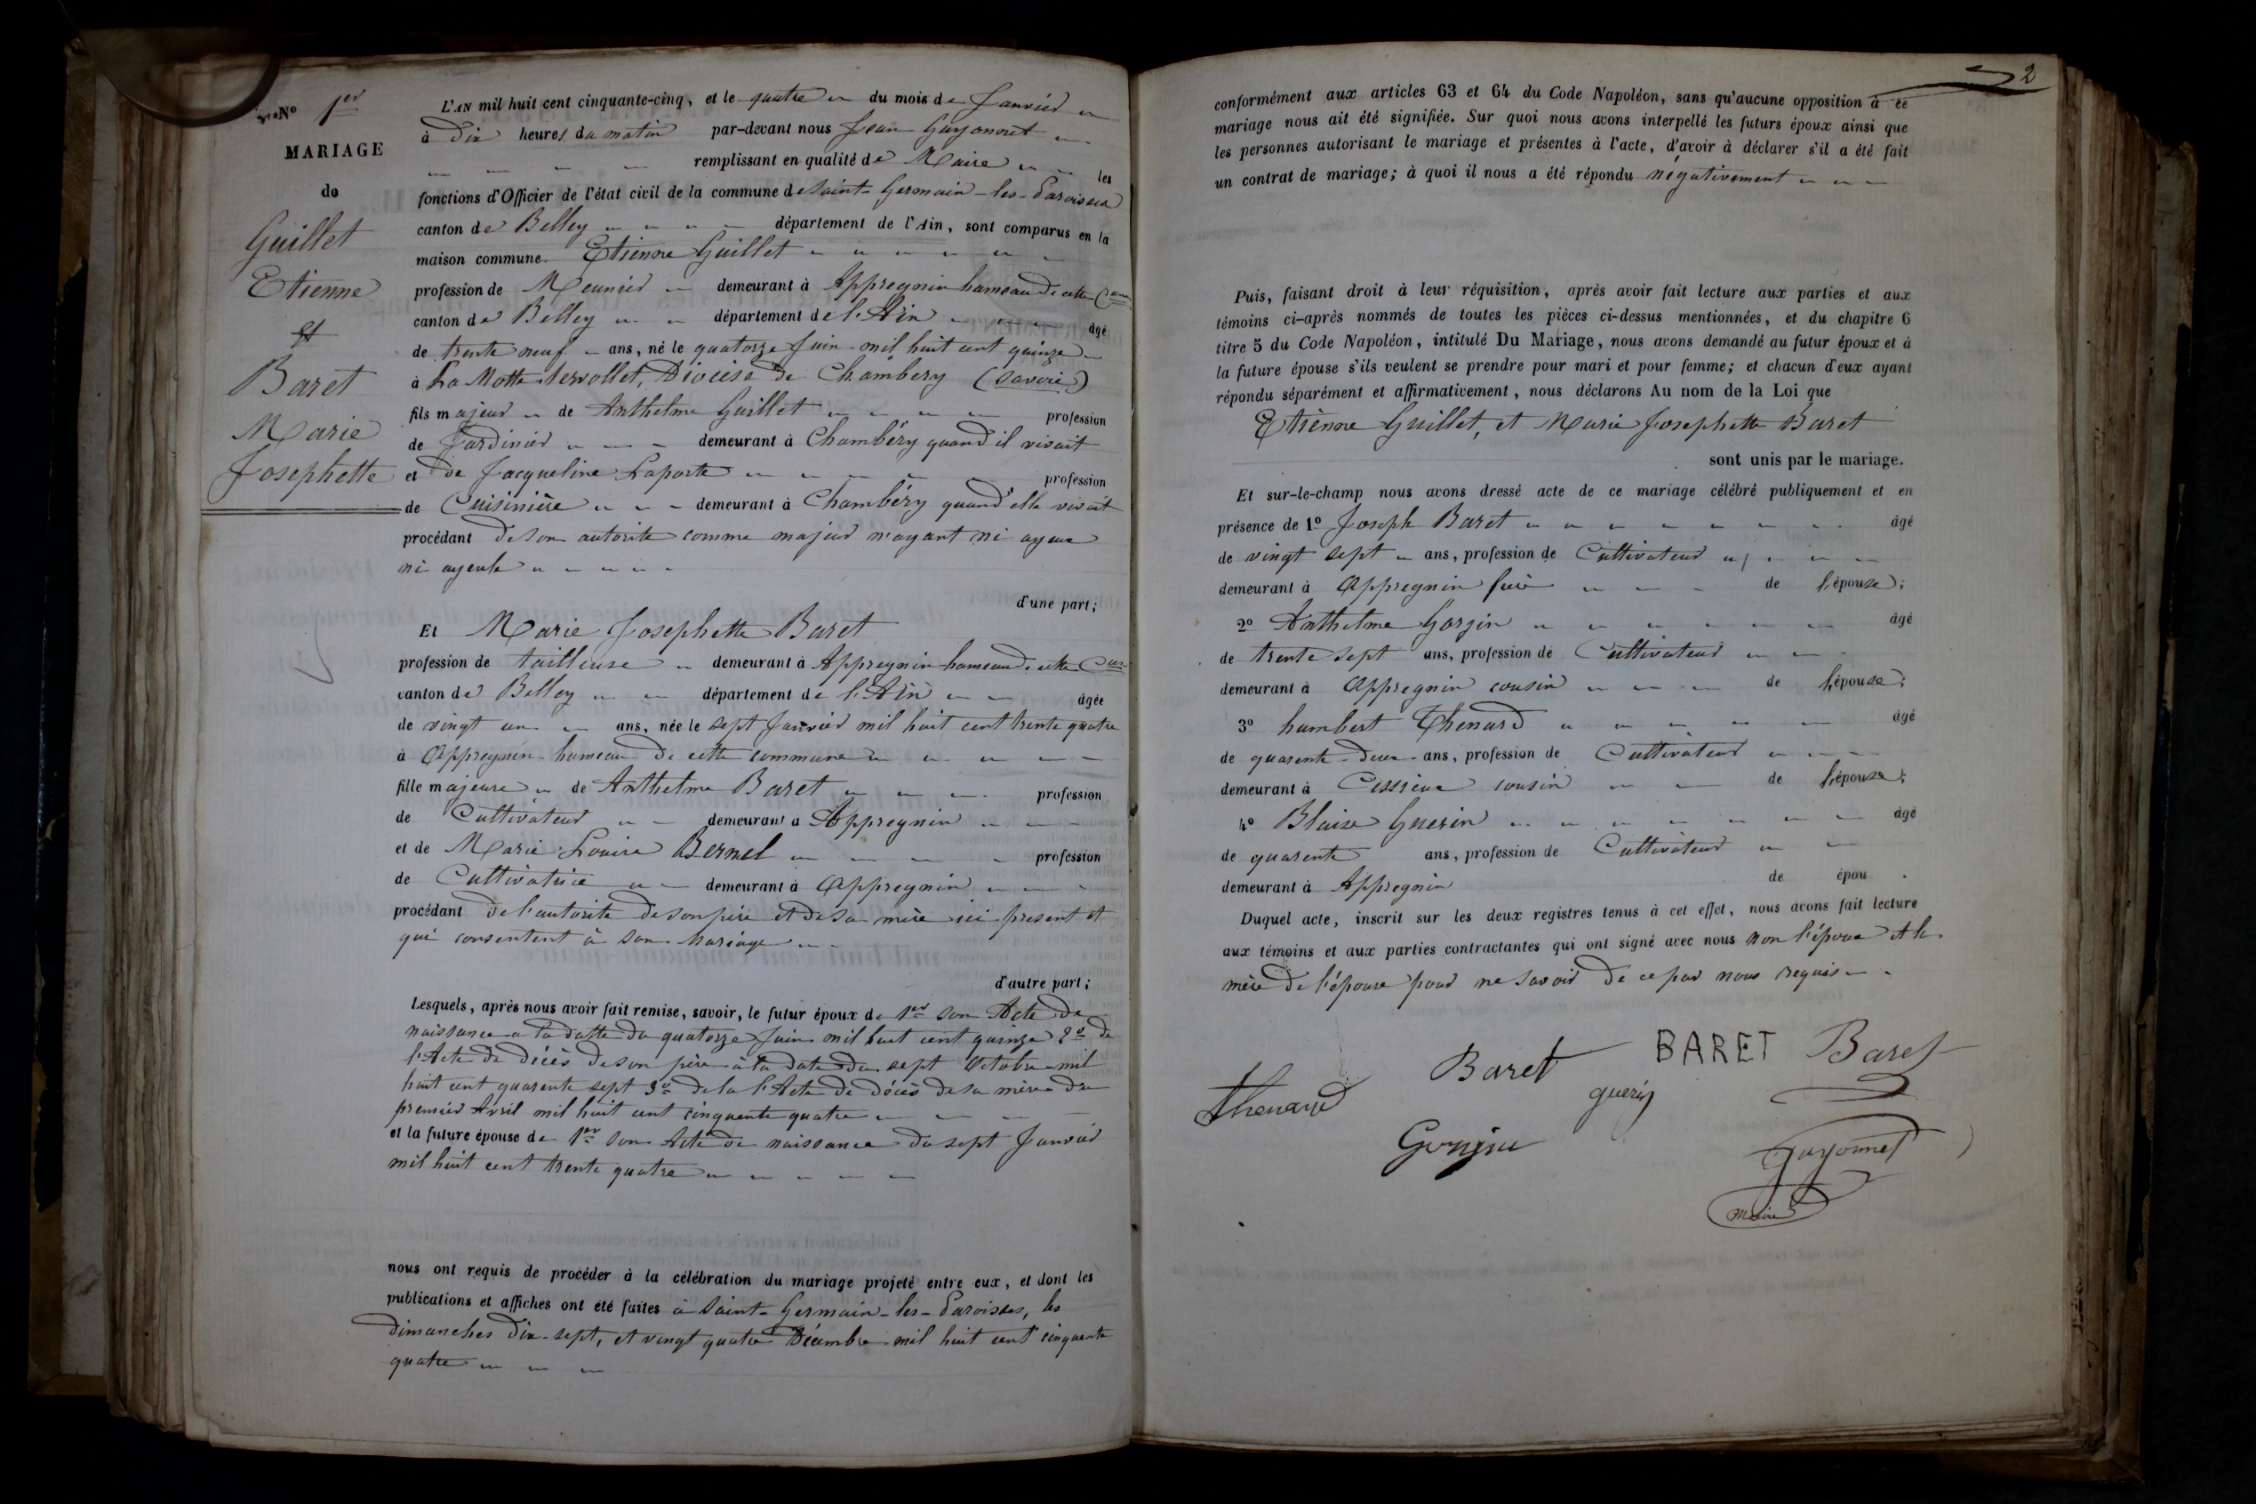 N° 1er
MARIAGE
de
Guillet
Etienne
et
Baret
Marie
Josephette
L'AN mil huit cent cinquante-cinq, et le quatre du mois de Janvier
à dix heures du matin par-devant nous Jean Guyonnet
remplissant en qualité de Maire les
fonctions d'Officier de l'état civil de la commune de Saint-Germain-les-Paroisses
canton de Belley département de l'Ain, sont comparus en la
maison commune. Etienne Guillet
profession de Meunier demeurant à Appregnin hameau de cette Cne
canton de Belley département de l'Ain âgé
de trente neuf ans, né le quatorze Juin mil huit cent quinze
à La Motte Servollet, Diocèse de Chambery (Savoie)
fils majeur de Anthelme Guillet profession
de Jardinier demeurant à Chambéry quand il vivait
et de Jacqueline Laporte profession
de Cuisinière demeurant à Chambéry quand elle vivait
procédant de son autorité comme majeur n'ayant ni ayeux
ni ayeule
d'une part;
Et Marie Josephette Baret
profession de tailleuse demeurant à Appregnin hameau de cette Cne
canton de Belley département de l'Ain âgée
de vingt un ans, née le sept Janvier mil huit cent trente quatre
à Appregnin hameau de cette commune
fille majeure de Anthelme Baret profession
de Cultivateur demeurant à Appregnin
et de Marie Louise Bernel profession
de Cultivatrice demeurant à Appregnin
procédant de l'autorité de son père et de sa mère ici présent et
qui consentent à son mariage
d'autre part;
Lesquels, après nous avoir fait remise, savoir, le futur époux de 1er son Acte de
naissance a la datte du quatorze Juin mil huit cent quinze 2° de
l'Acte de décès de son père à la date du sept Octobre mil
huit cent quarente sept 3° de la l'Acte de décès de sa mère du
premier Avril mil huit cent cinquante quatre
et la future épouse de 1er son Acte de naissance du sept Janvier
mil huit cent trente quatre
nous ont requis de procéder à la célébration du mariage projeté entre eux, et dont les
publications et affiches ont été faites à Saint-Germain-les-Paroisses, les
dimanches dix-sept, et vingt quatre Décembre mil huit cent cinquante
quatre
2
conformément aux articles 63 et 64 du Code Napoléon, sans qu'aucune opposition à ce
mariage nous ait été signifiée. Sur quoi nous avons interpellé les futurs époux ainsi que
les personnes autorisant le mariage et présentes à l'acte, d'avoir à déclarer s'il a été fait
un contrat de mariage; à quoi il nous a été répondu négativement
Puis, faisant droit à leur réquisition, après avoir fait lecture aux parties et aux
témoins ci-après nommés de toutes les pièces ci-dessus mentionnées, et du chapitre 6
titre 5 du Code Napoléon, intitulé Du Mariage, nous avons demandé au futur époux et à
la future épouse s'ils veulent se prendre pour mari et pour femme; et chacun d'eux ayant
répondu séparément et affirmativement, nous déclarons Au nom de la Loi que
Etienne Guillet, et Marie Josephette Baret
sont unis par le mariage.
Et sur-le-champ nous avons dressé acte de ce mariage célébré publiquement et en
présence de 1° Joseph Baret âgé
de vingt sept ans, profession de Cultivateur
demeurant à Appregnin frère de l'épouse;
2° Anthelme Gorjin âgé
de trente sept ans, profession de Cultivateur
demeurant à Appregnin cousin de l'épouse;
3° humbert Thenard âgé
de quarente-deux ans, profession de Cultivateur
demeurant à Cessieux cousin de l'épouse;
4° Blaise Guerin âgé
de quarente ans, profession de Cultivateur
demeurant à Appregnin de épou .
Duquel acte, inscrit sur les deux registres tenus à cet effet, nous avons fait lecture
aux témoins et aux parties contractantes qui ont signé avec nous non l'époux et la
mère de l'épouse pour ne savoir de ce par nous requis
Baret BARET Baret
Thenard guerin
Gorjin Guyonnet
maire